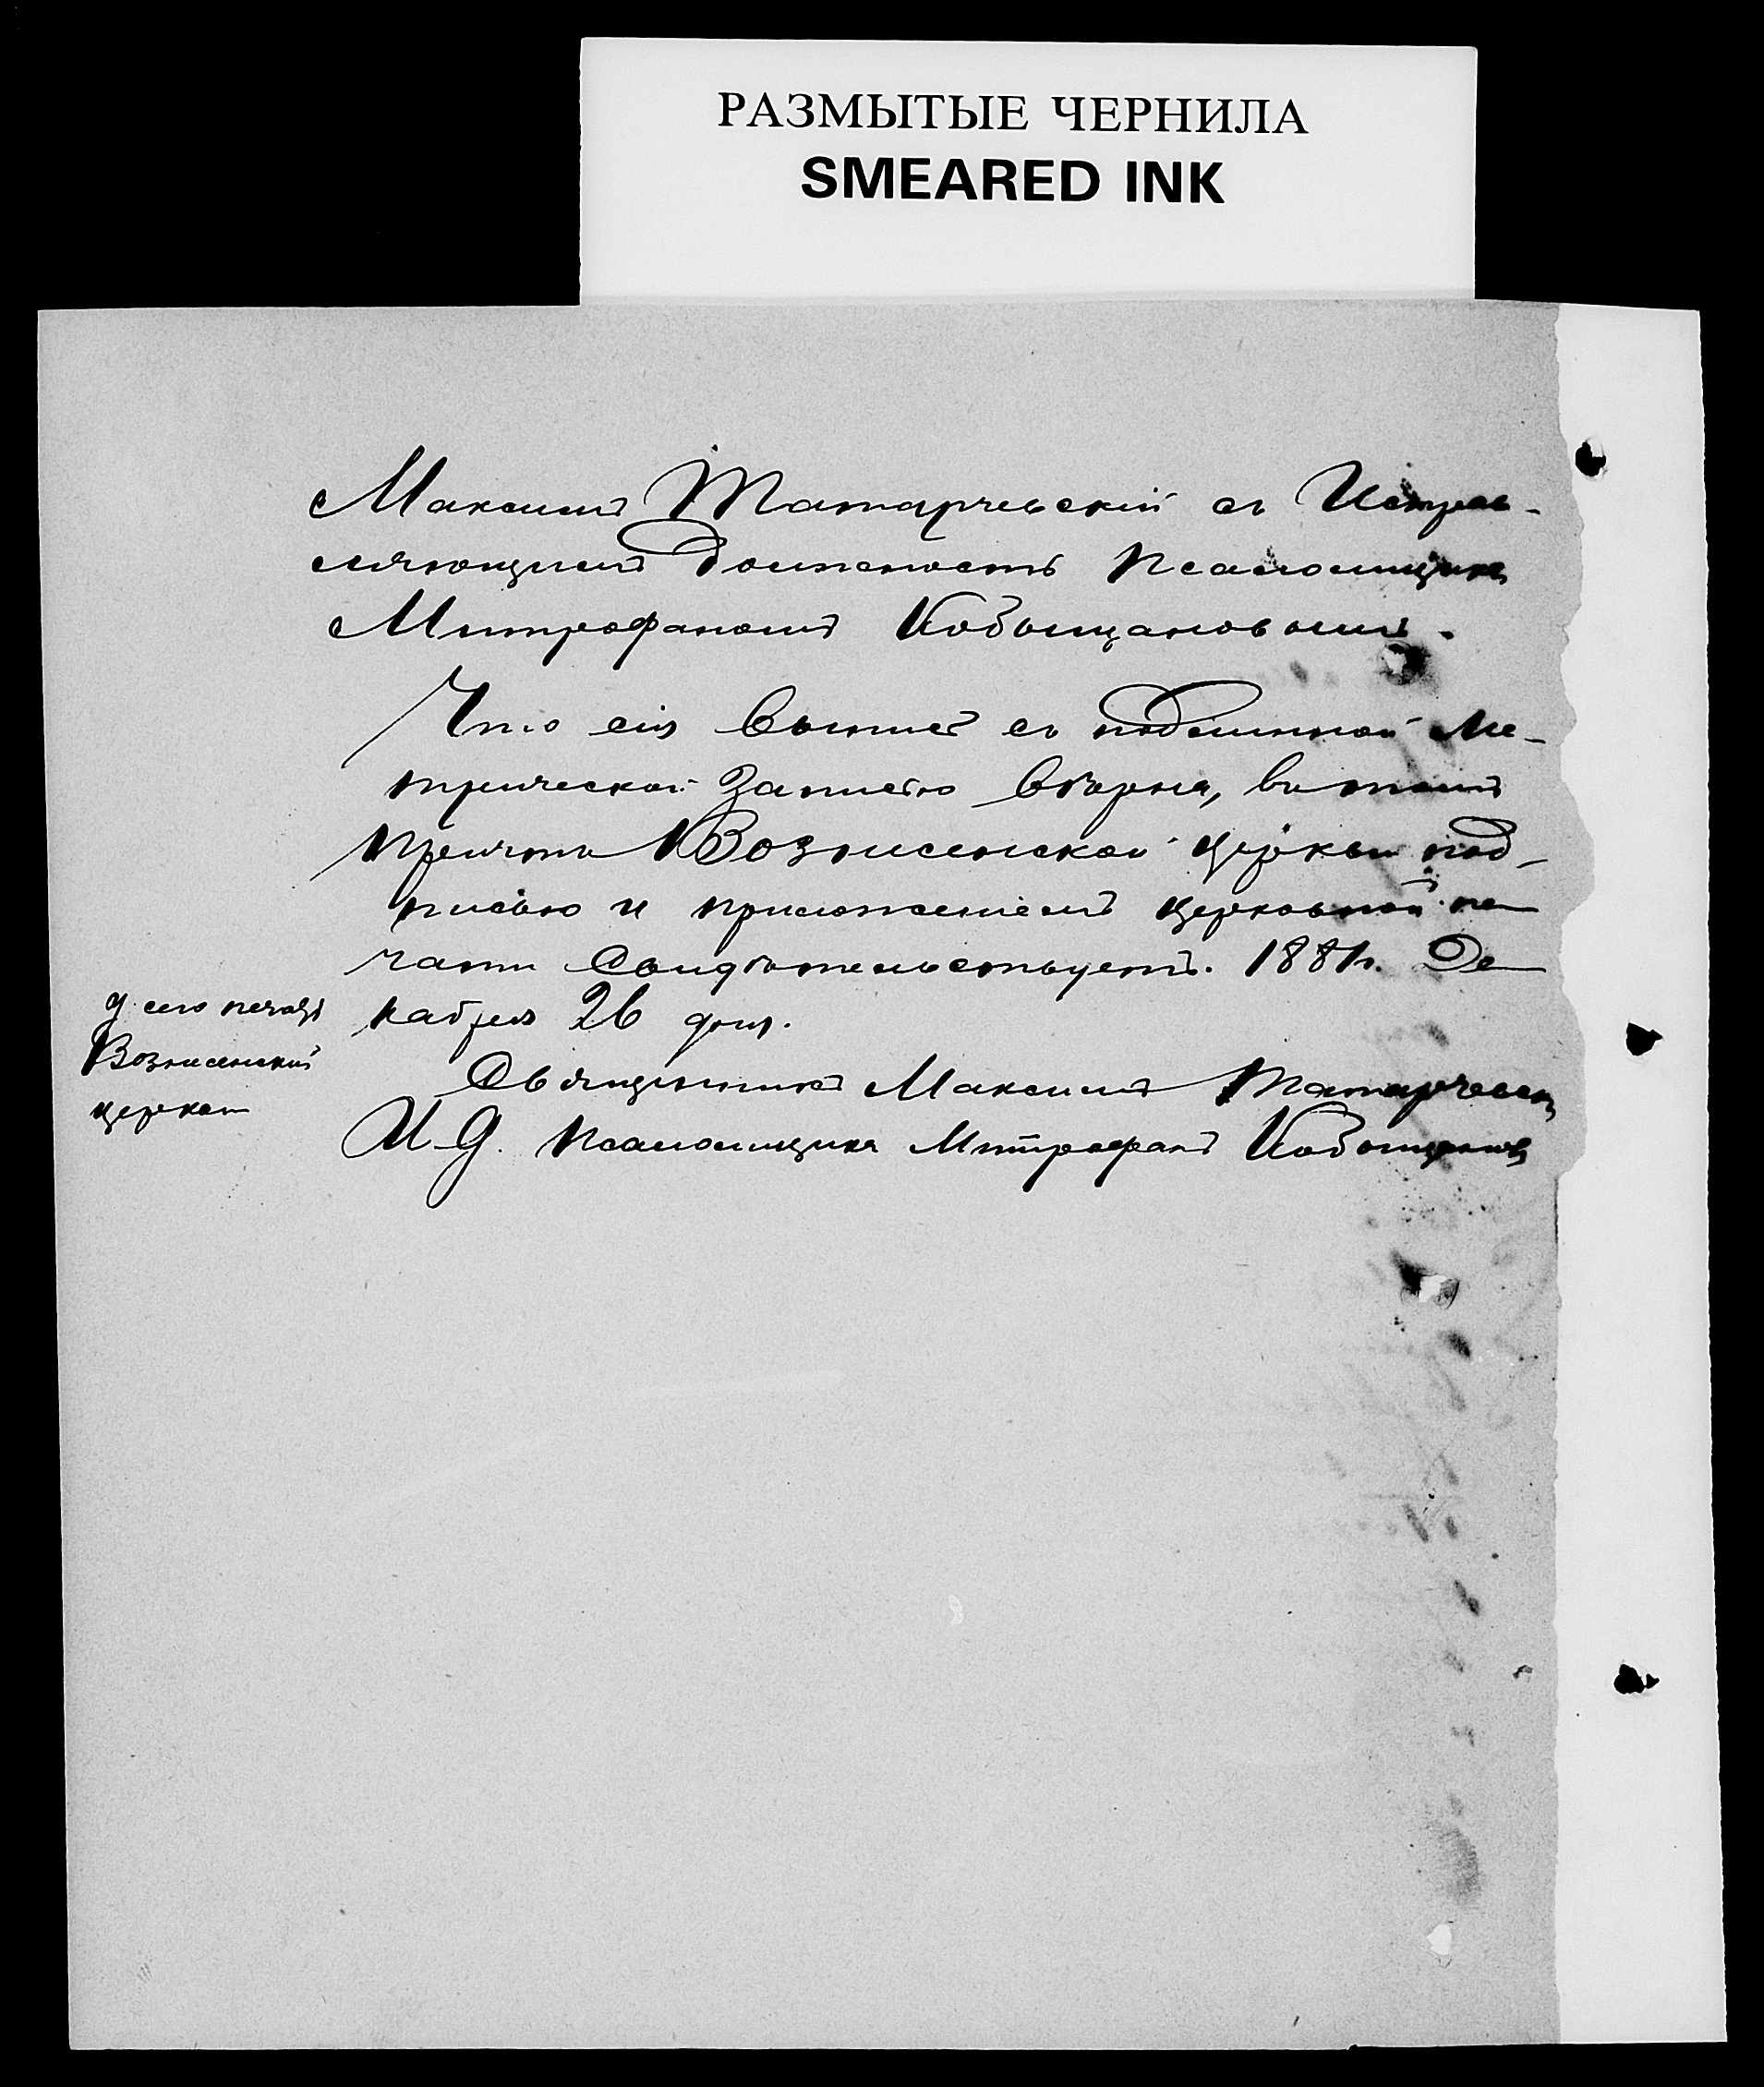 РАЗМЫТЫЕ ЧЕРНИЛА
SMEARED INK
Максимъ Татарчевскій съ Исправ-
ляющимъ должность псаломщика
Митрофаномъ Кобыщановымъ.
Что сія выпись съ подлинной Ме-
трической записью вѣрна, въ томъ
причтъ Вознесенской церкви под-
писью и приложеніемъ церковной пе
чати свидѣтельствуетъ. 1881г. Де
кабря 26 дня.
сего печать
Вознесенской
церкви
Священникъ Максимъ Татарчевск
И. Д. псаломщика Митрофанъ Кобыщановъ